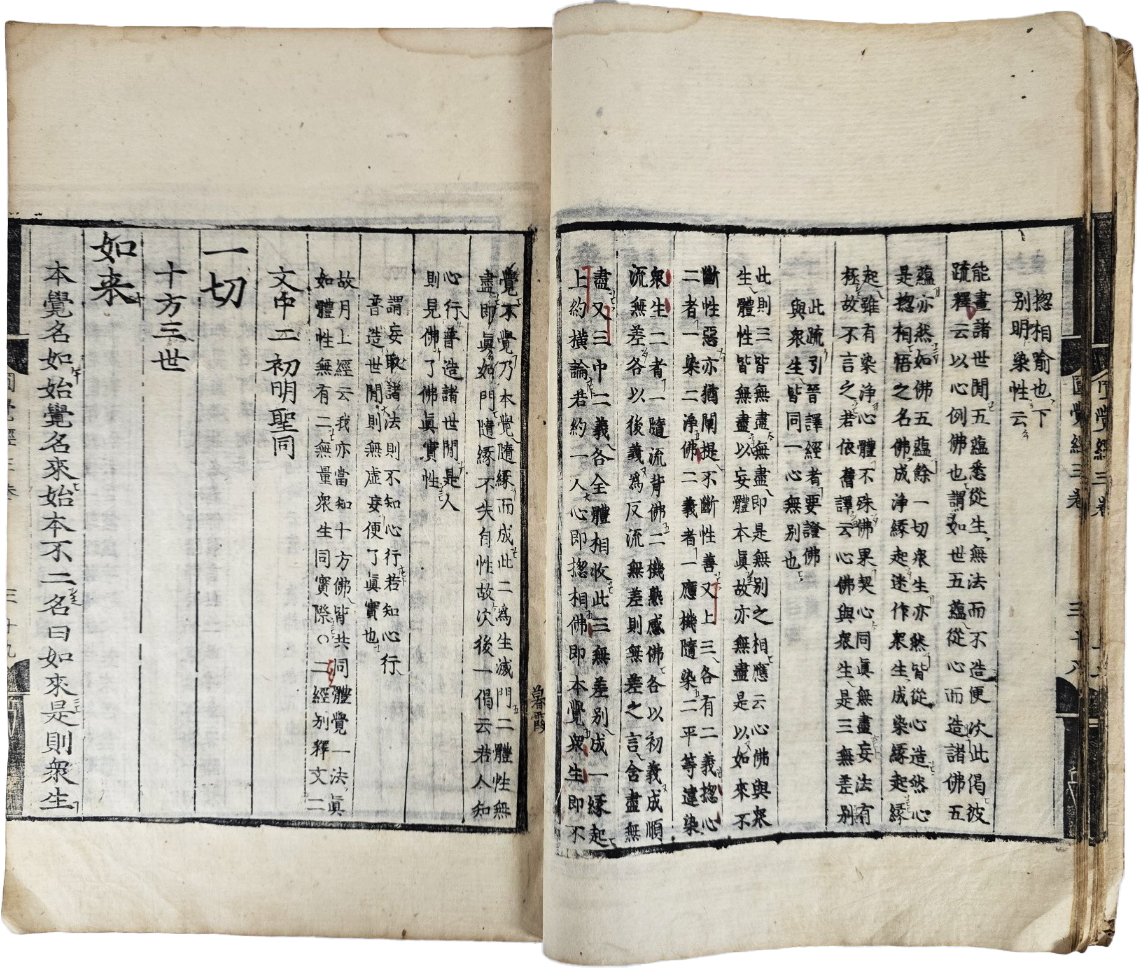 揔相喻也下
別明染性云
能畫諸世間五蘊悉從生無法而不造便次此偈彼
䟽釋云以心例佛也謂如世五蘊從心而造諸佛五
蘊亦然如佛五蘊餘一切衆生亦然皆從心造然心
是揔相悟之名佛成淨緣起迷作衆生成染緣起緣
起雖有染淨心體不殊佛果契心同眞無盡妄法有
極故不言之若依舊譯云心佛與衆生是三無差別
此䟽引晉譯經者要證佛
與衆生皆同一心無別也
此則三皆無盡無盡即是無別之相應云心佛與衆
生體性皆無盡以妄體本眞故亦無盡是以如來不
斷性惡亦猶闡提不斷性善又上三各有二義揔心
二者一染二淨佛二義者一應機隨染二平等違染
衆生二者一隨流背佛二機熟感佛各以初義成順
流無差各以後義為反流無差則無差之言含盡無
盡又三中二義各全體相收此三無差別成一緣起
上約橫論若約一人心即揔相佛即本覺衆生即不
圓覺經三卷
三十八
覺本覺乃本覺隨緣而成此二為生滅門二體性無
盡即眞如門隨緣不失自性故次後一偈云若人知
心行普造諸世間是人
則見佛了佛眞實性
謂妄取諸法則不知心行若知心行
普造世間則無虛妄便了眞實也
故月上經云我亦當知十方佛皆共同體覺一法眞
如體性無有二無量衆生同實際○二經別釋文二
文中二初明聖同
一切
十方三世
如来
本覺名如始覺名來始本不二名曰如來是則衆生
三十九